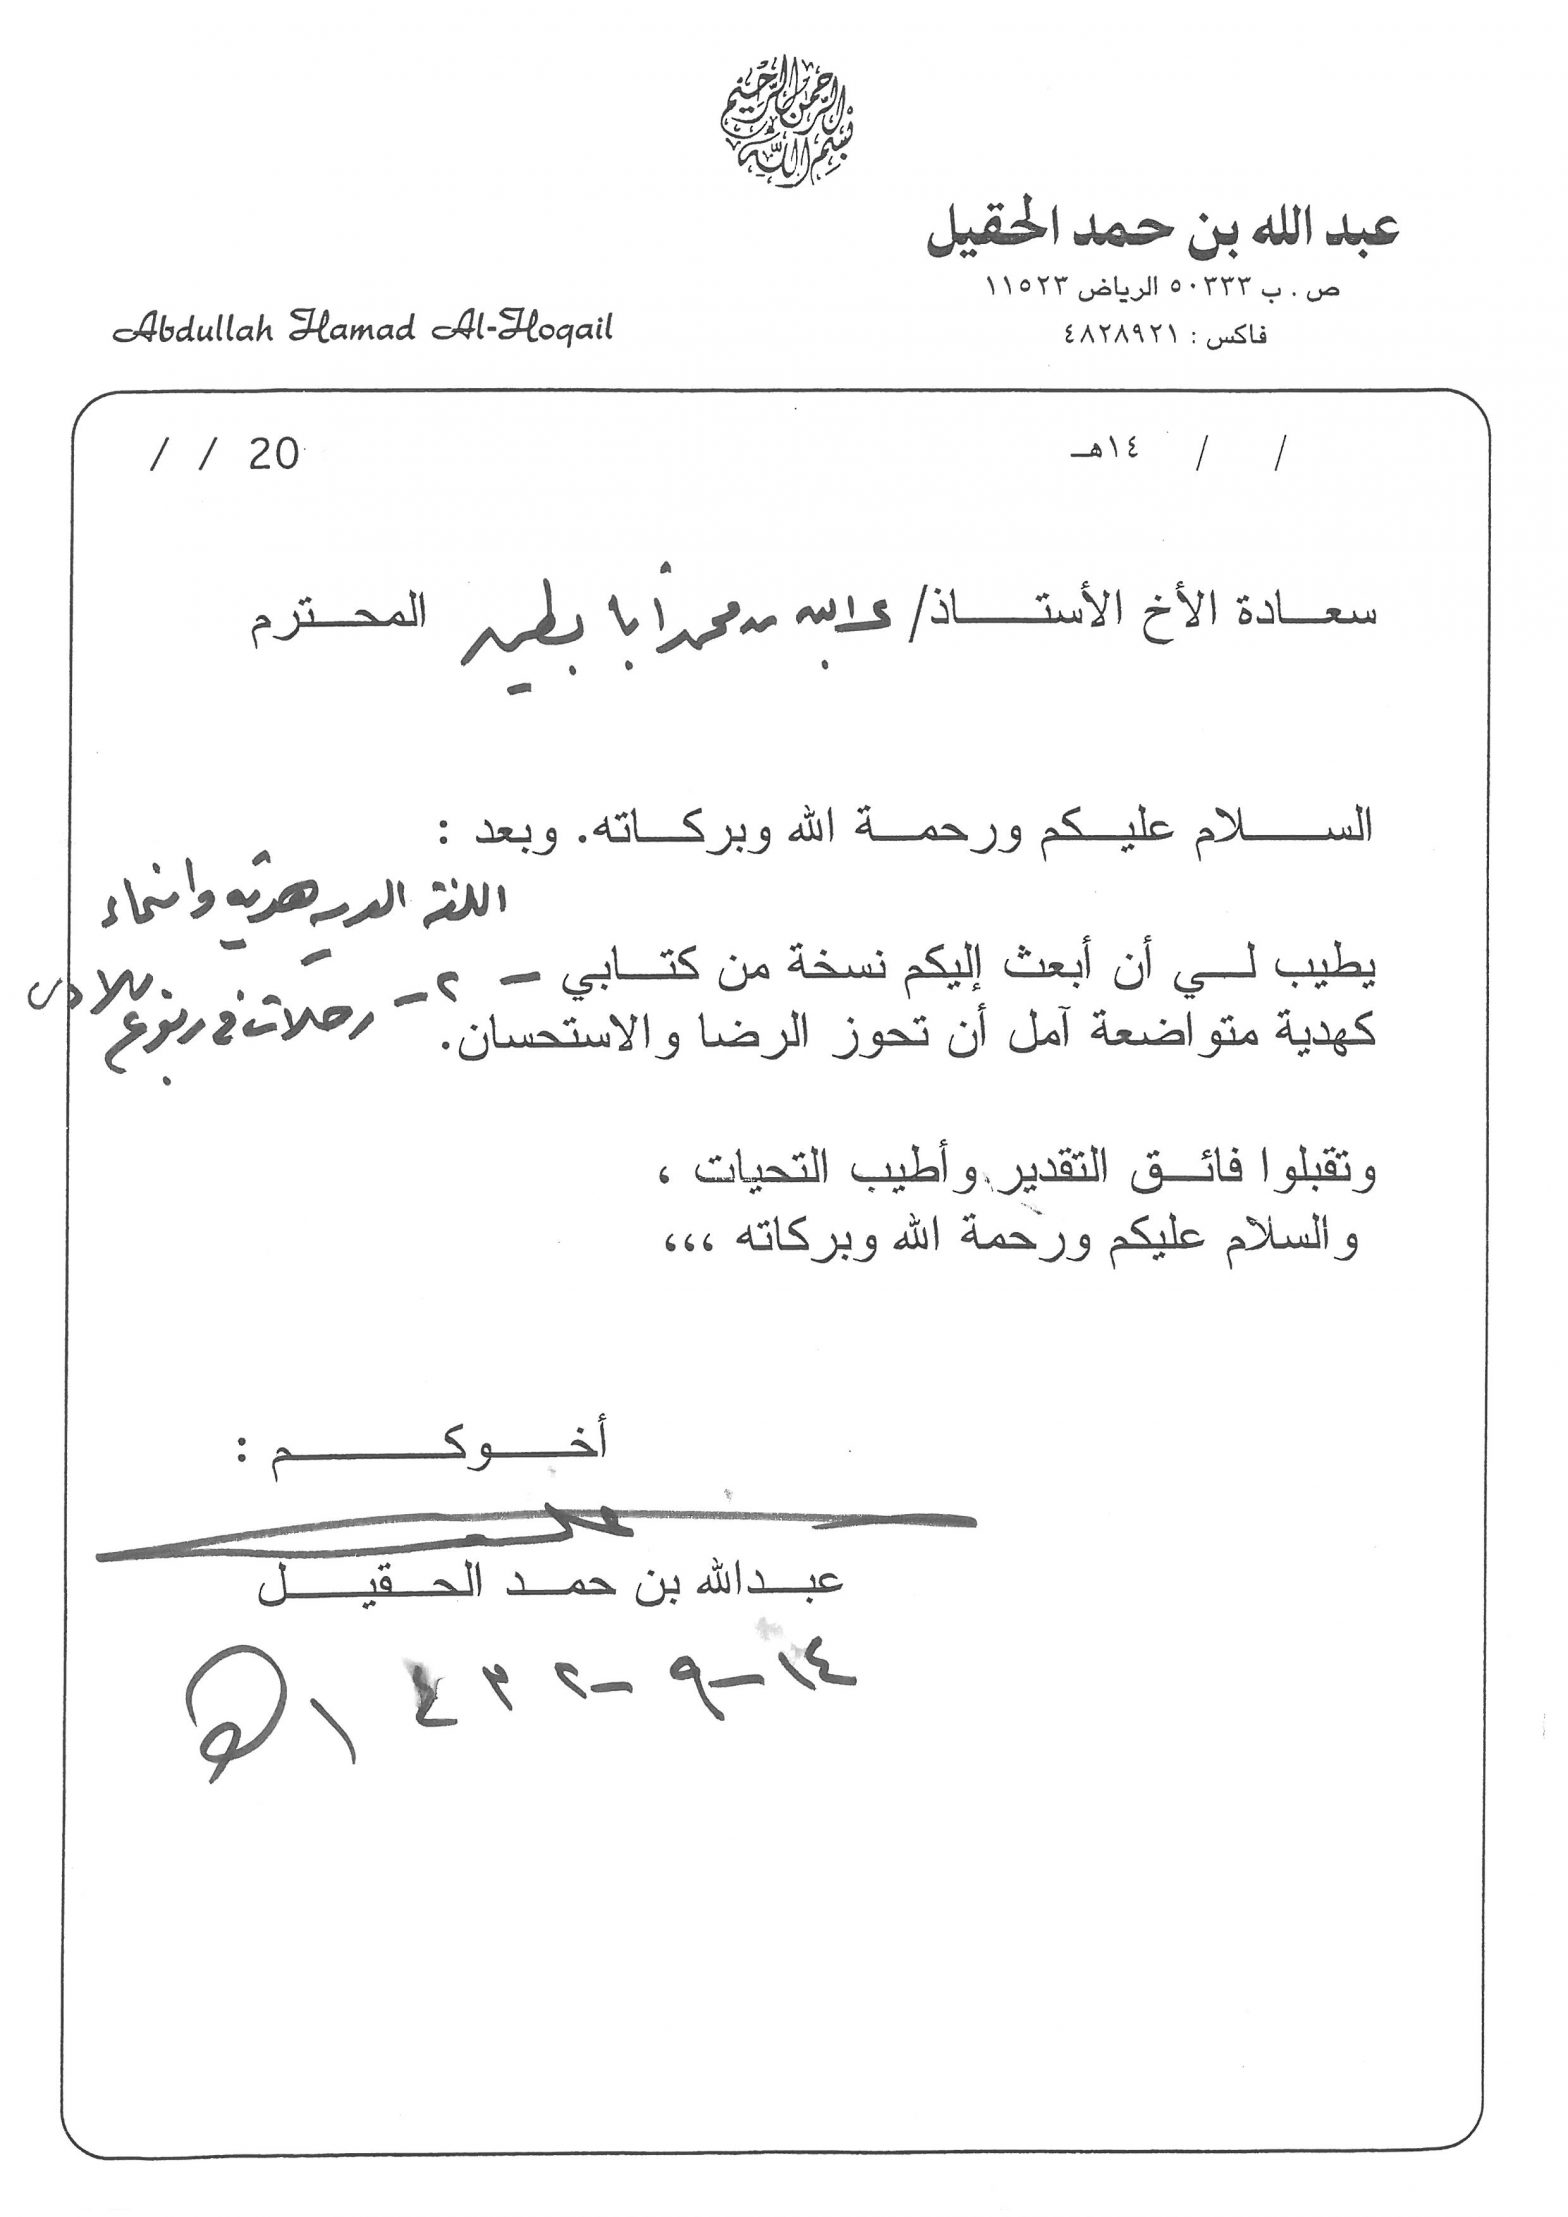 بسم الله الرحمن الرحيم
عبد الله بن حمد الحقيل
ص . ب ٥٠٣٣٣ الرياض ١١٥٢٣
فاكس : ٤٨٢٨٩٢١
Abdullah Hamad Al-Hoqail
/ / ١٤هـ
/ / 20
سعادة الأخ الأستاذ/ عبدالله بن محمد أبا بطين المحترم
السلام عليكم ورحمة الله وبركاته. وبعد :
اللغة العربية هوية وانتماء
يطيب لي أن أبعث إليكم نسخة من كتابي - ٢ - رحلات في ربوع بلادي
كهدية متواضعة آمل أن تحوز الرضا والاستحسان.
وتقبلوا فائق التقدير وأطيب التحيات ،
والسلام عليكم ورحمة الله وبركاته ،،،
أخوكم :
عبدالله بن حمد الحقيل
١٤-٩-١٤٣٢هـ